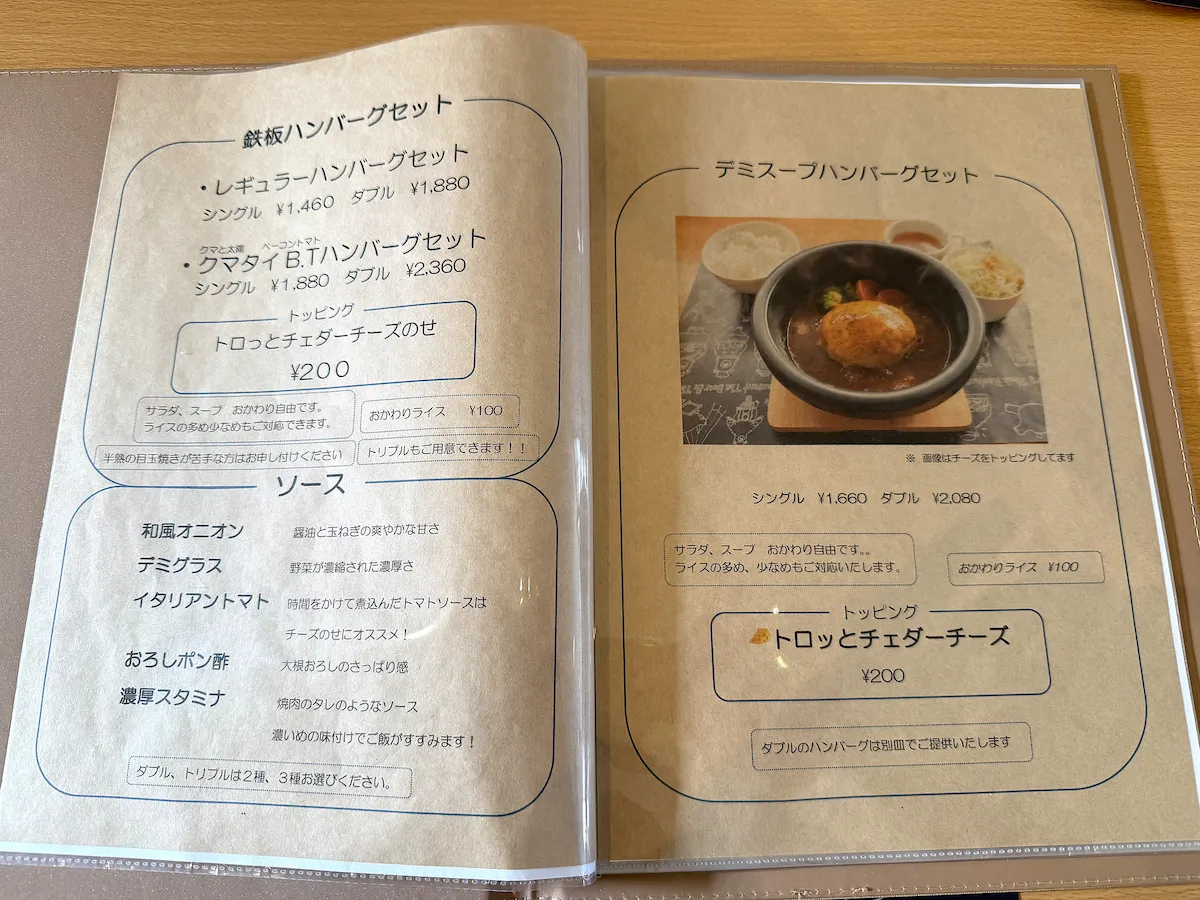 鉄板ハンバーグセット
・レギュラーハンバーグセット
シングル ¥1,460 ダブル ¥1,880
クマと太陽 ベーコントマト
・クマタイB.Tハンバーグセット
シングル ¥1,880 ダブル ¥2,360
トッピング
トロっとチェダーチーズのせ
¥200
サラダ、スープ おかわり自由です。
ライスの多め少なめもご対応できます。
おかわりライス ¥100
半熟の目玉焼きが苦手な方はお申し付けください
トリプルもご用意できます！！
ソース
和風オニオン 醤油と玉ねぎの爽やかな甘さ
デミグラス 野菜が濃縮された濃厚さ
イタリアントマト 時間をかけて煮込んだトマトソースは
チーズのせにオススメ！
おろしポン酢 大根おろしのさっぱり感
濃厚スタミナ 焼肉のタレのようなソース
濃いめの味付けでご飯がすすみます！
ダブル、トリプルは２種、３種お選びください。
デミスープハンバーグセット
※ 画像はチーズをトッピングしてます
シングル ¥1,660 ダブル ¥2,080
サラダ、スープ おかわり自由です。。
ライスの多め、少なめもご対応いたします。
おかわりライス ¥100
トッピング
トロッとチェダーチーズ
¥200
ダブルのハンバーグは別皿でご提供いたします